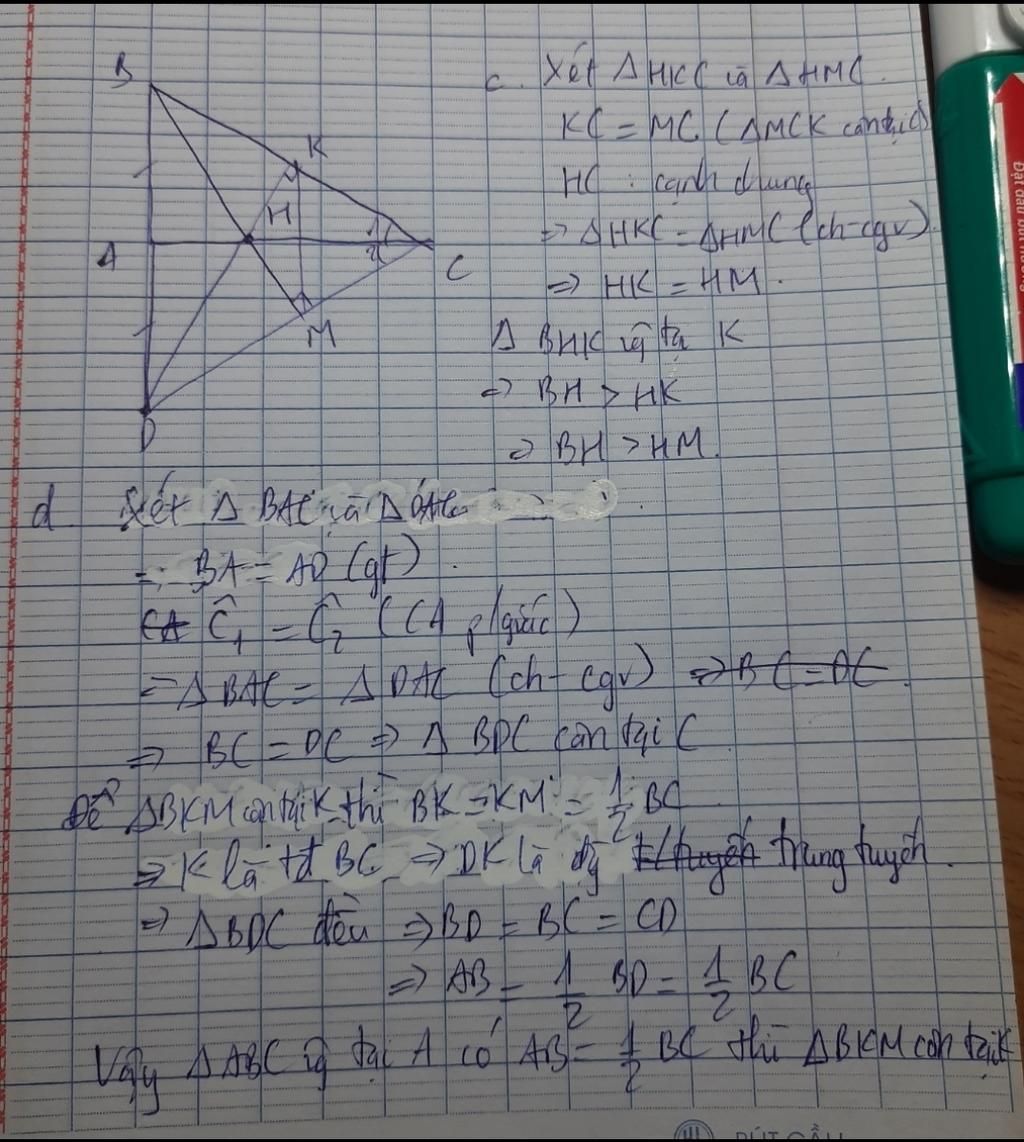 B
K
H
A
1
2
C
M
D
c. Xét Δ HKC và Δ HMC.
KC = MC (ΔMCK cân tại C)
HC : cạnh chung
=> ΔHKC = ΔHMC (ch-cgv).
=> HK = HM.
Δ BHK vg tại K
=> BH > HK
=> BH > HM.
d Xét Δ BAC và Δ DAC
BA = AD (gt).
CA Ĉ₁ = Ĉ₂ (CA p/giác)
=> Δ BAC = Δ DAC (ch- cgv) => BC = DC.
=> BC = DC => Δ BDC cân tại C
Để ΔBKM cân tại K thì BK = KM = 1/2 BC
=> K là tđ BC => DK là đg t/tuyến trung tuyến.
=> ΔBDC đều => BD = BC = CD
=> AB = 1/2 BD = 1/2 BC
Vậy ΔABC vg tại A có AB = 1/2 BC thì ΔBKM cân tại K
BÚT GẦU